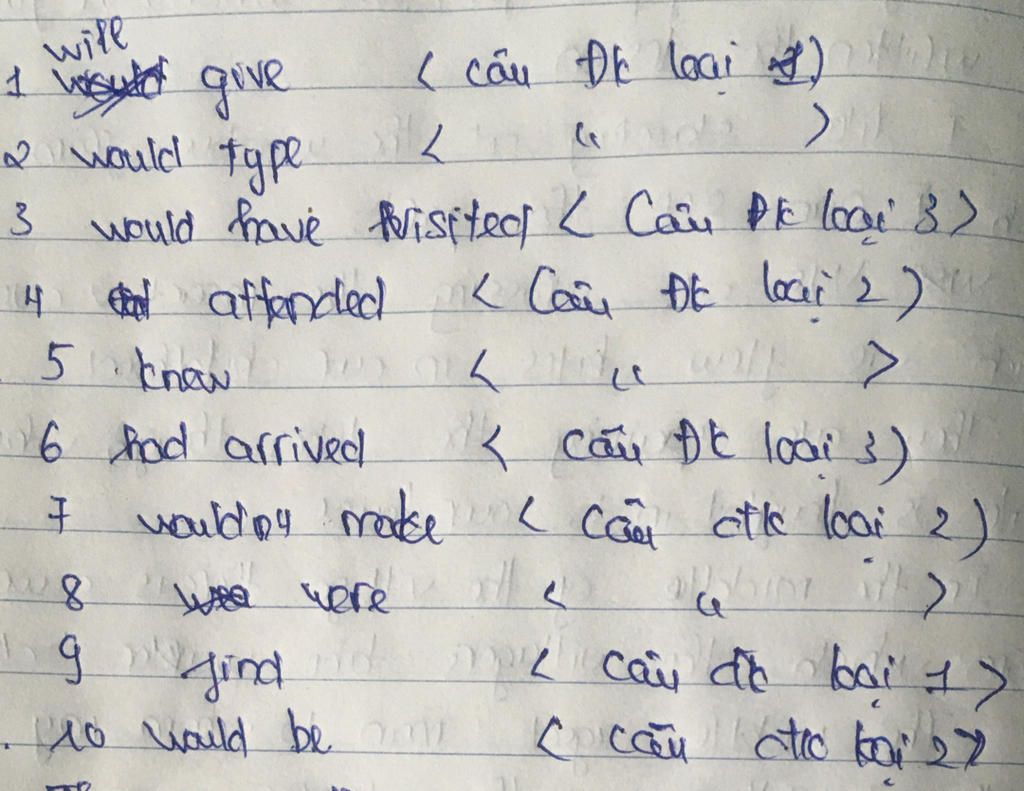 will
1 give < câu ĐK loại 1)
2 would type < " >
3 would have visited < Câu ĐK loại 3 >
4 attended < Câu ĐK loại 2 )
5 know < " >
6 had arrived < câu ĐK loại 3 )
7 would make < câu đk loại 2 )
8 were < " >
9 find < câu đk loại 1 >
10 would be < câu đk loại 2 >